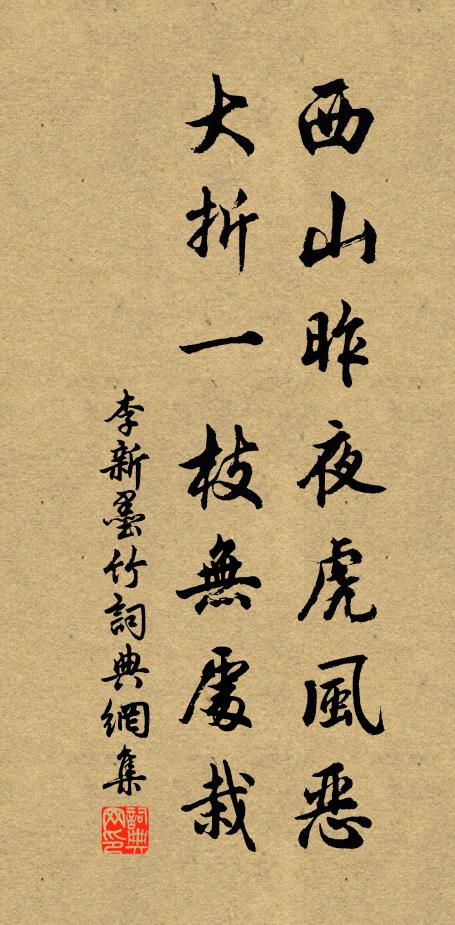 西山昨夜虎風恶
大折一枝無處栽
李新墨竹詞典網集
詞典网印